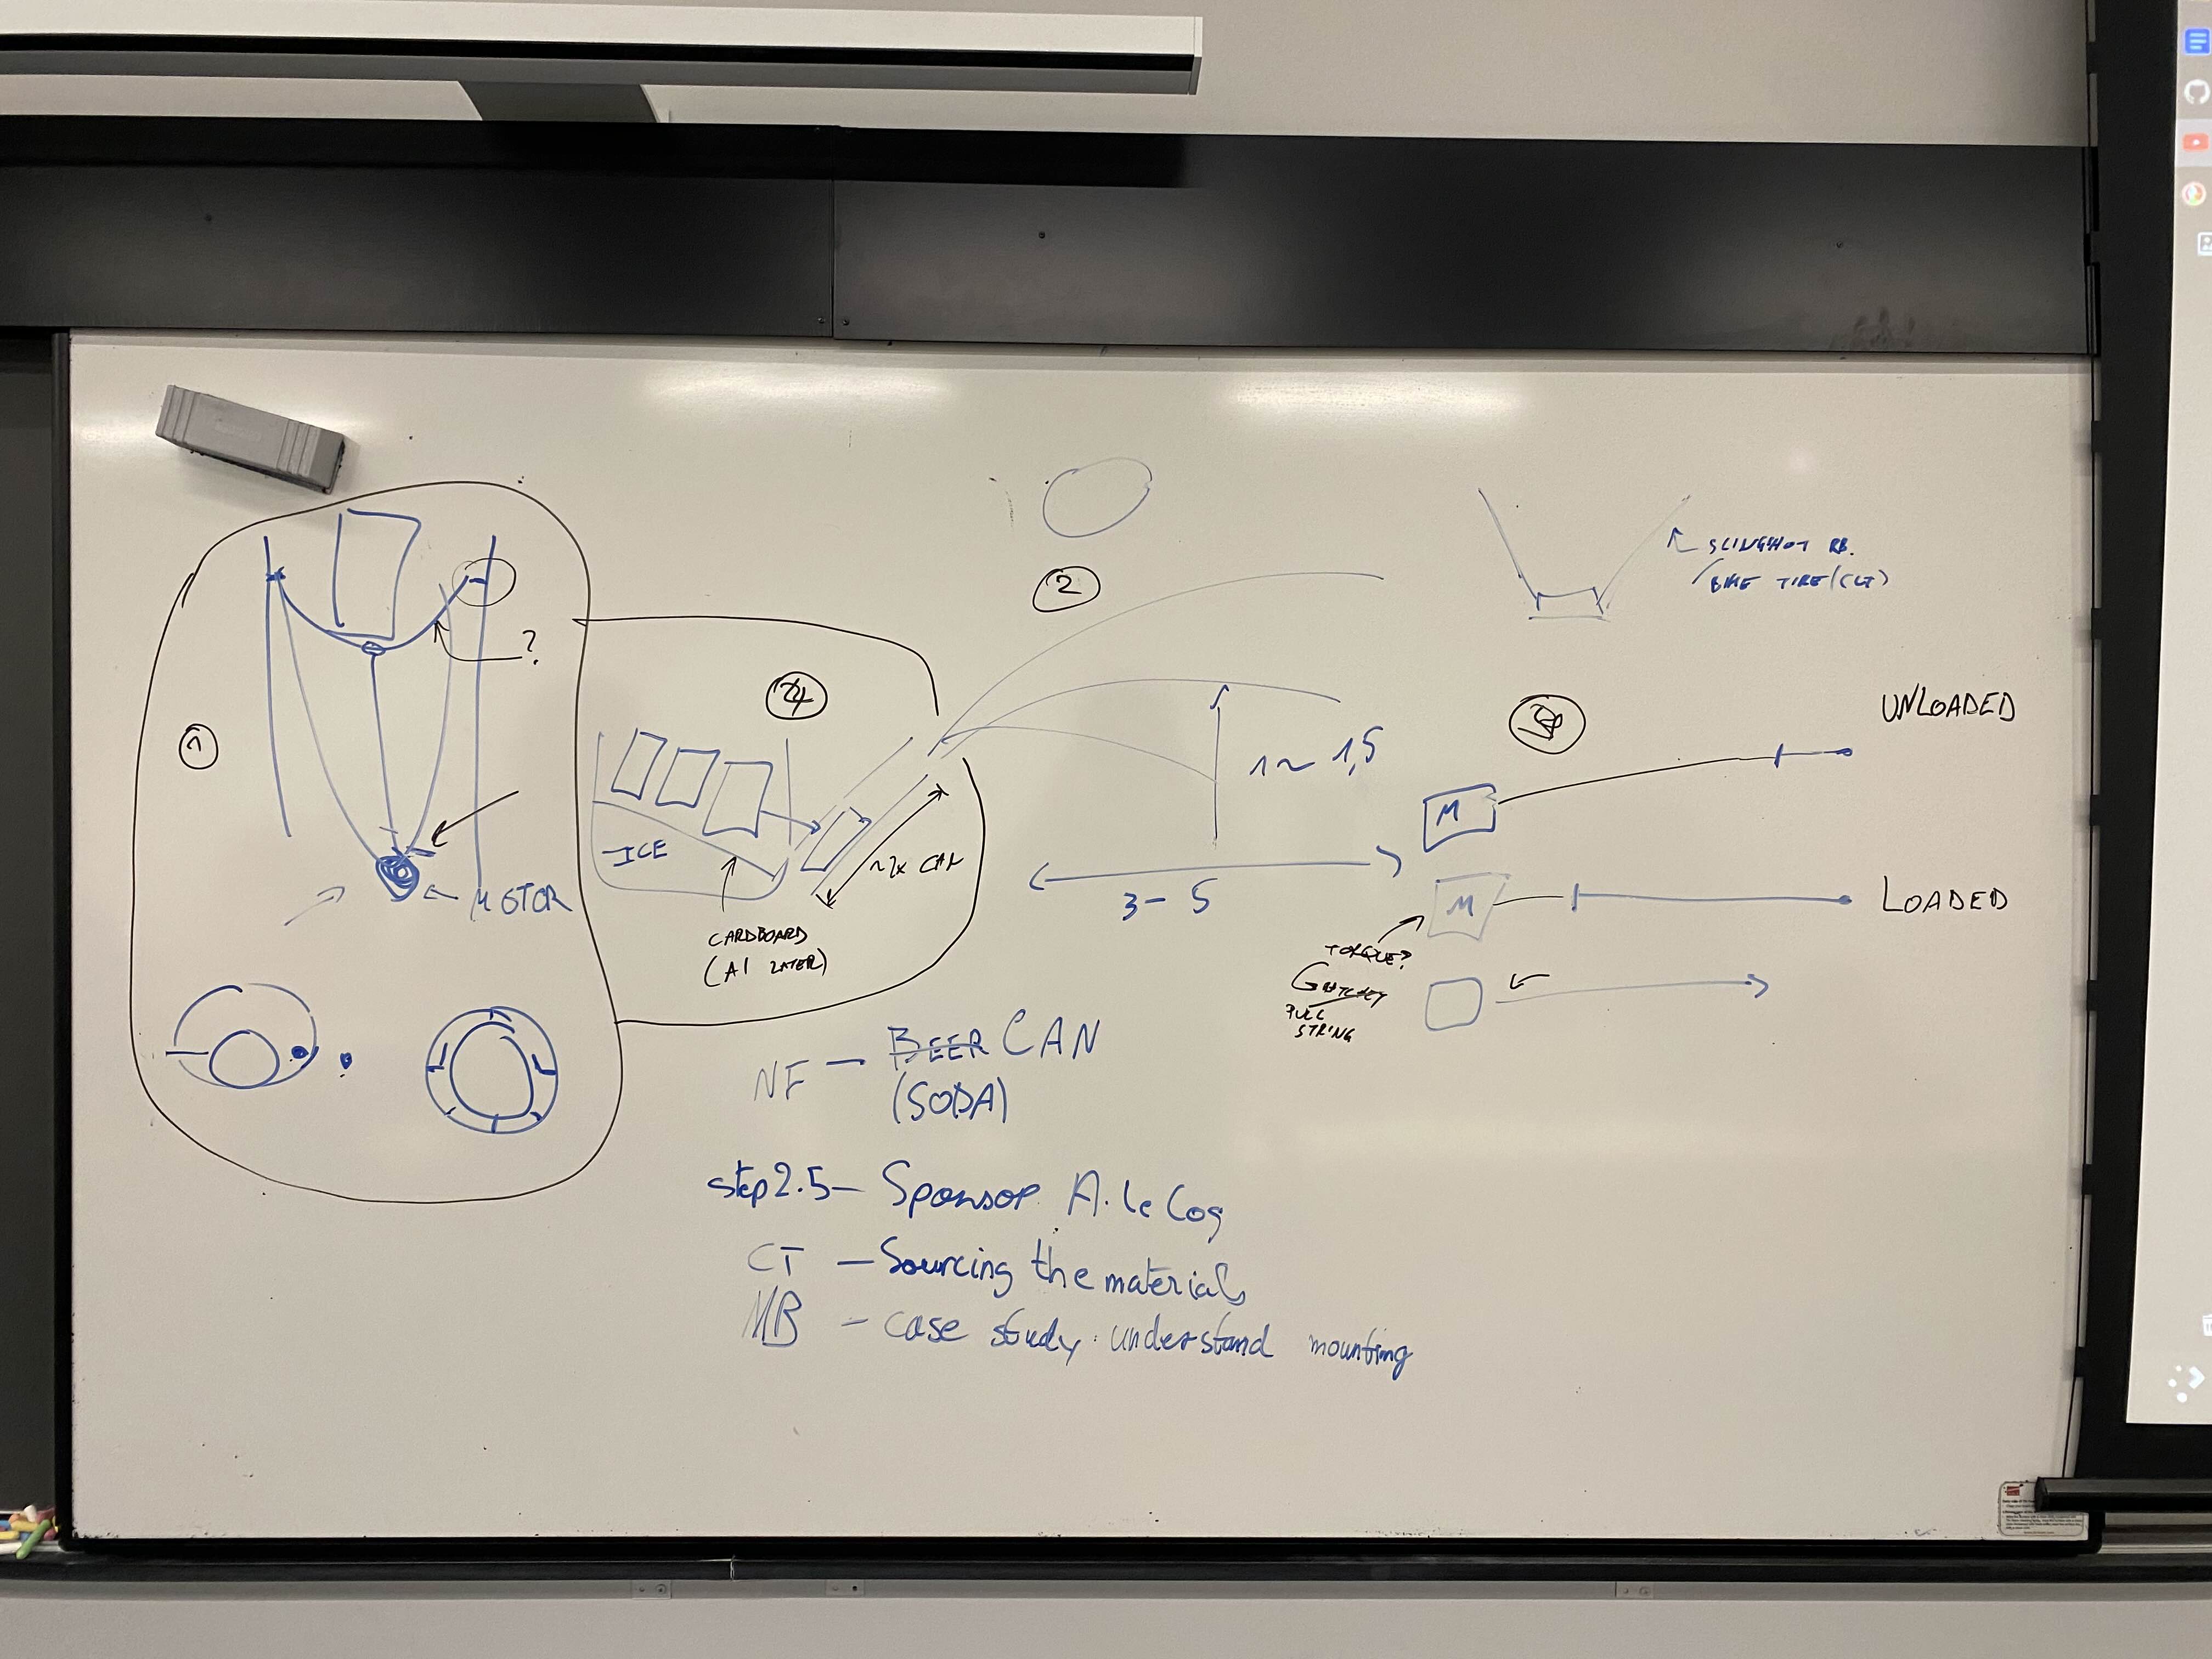 1
?
← MOTOR
ICE
CARDBOARD
(Al LATER)
~2x CAN
2
1~1,5
3-5
/BIKE TIRE/(CT)
UNLOADED
M
M
LOADED
TORQUE?
PULL
STRING
NF — BEER CAN
(SODA)
Step 2.5 — Sponsor A. le Coq
CT — Sourcing the materials
MB — case study: understand mounting